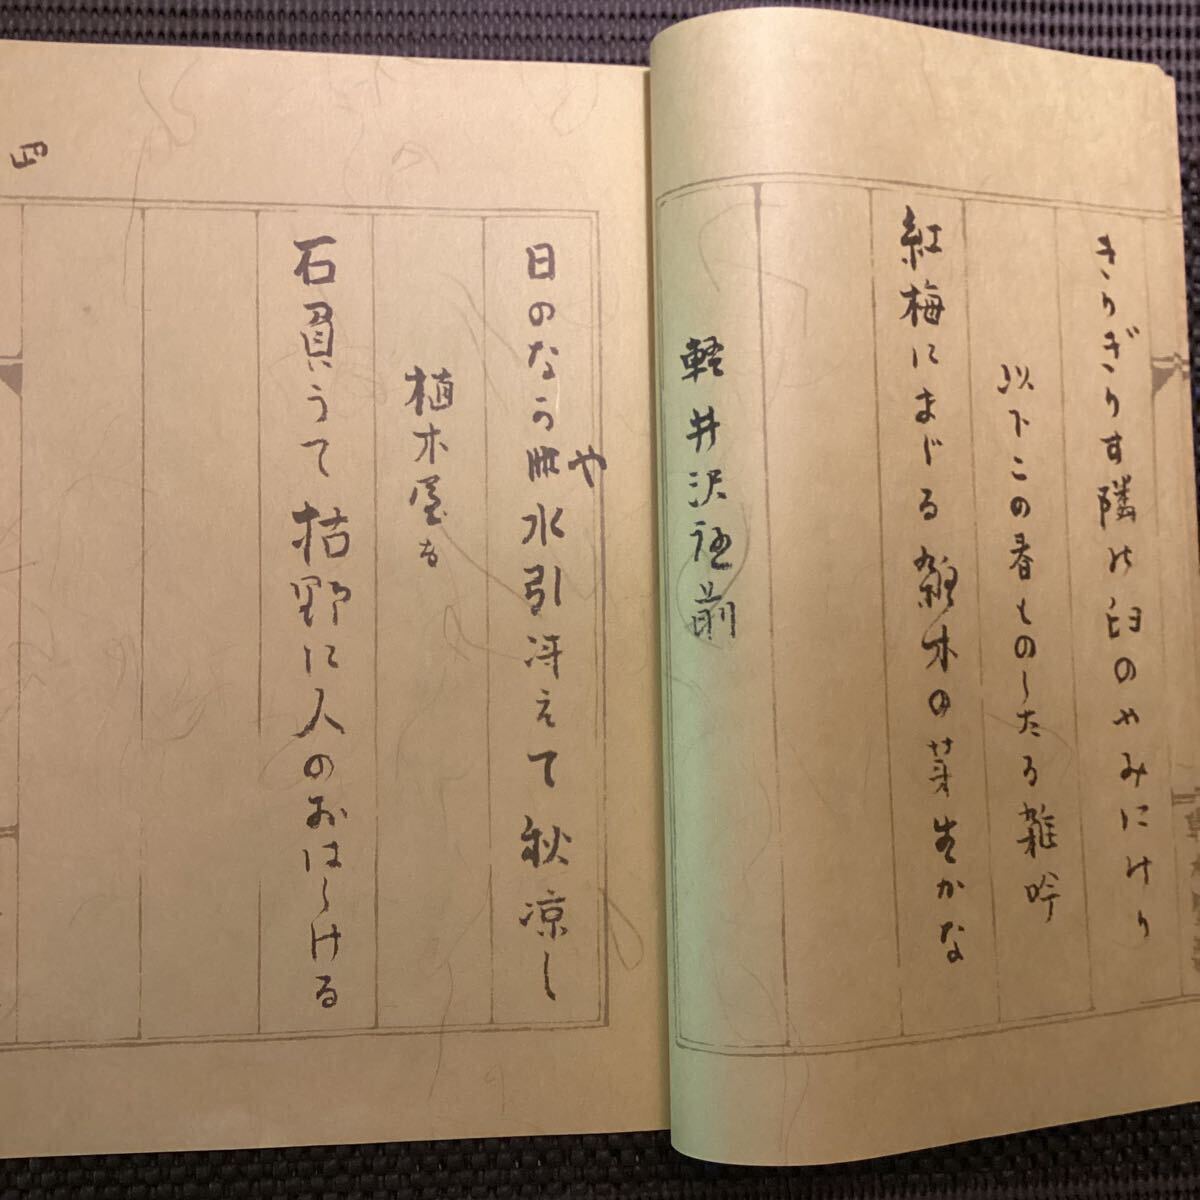 きりぎりす隣の臼のやみにけり
以下この春ものしたる雑吟
紅梅にまじる雑木の芽生かな
軽井沢
日のなかや水引冴えて秋涼し
植木屋を
石負うて枯野に人のおはしける
四